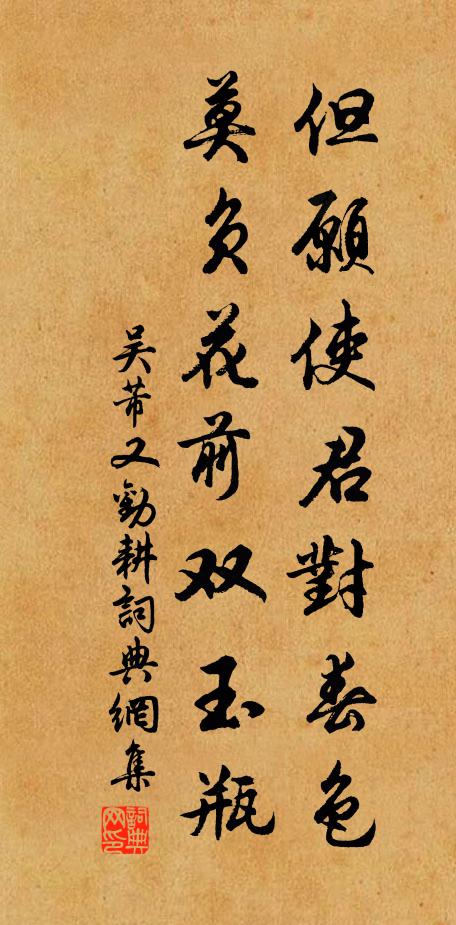 但願使君對春色
莫負花前双玉瓶
吴芾又勸耕詞典網集
詞典网印